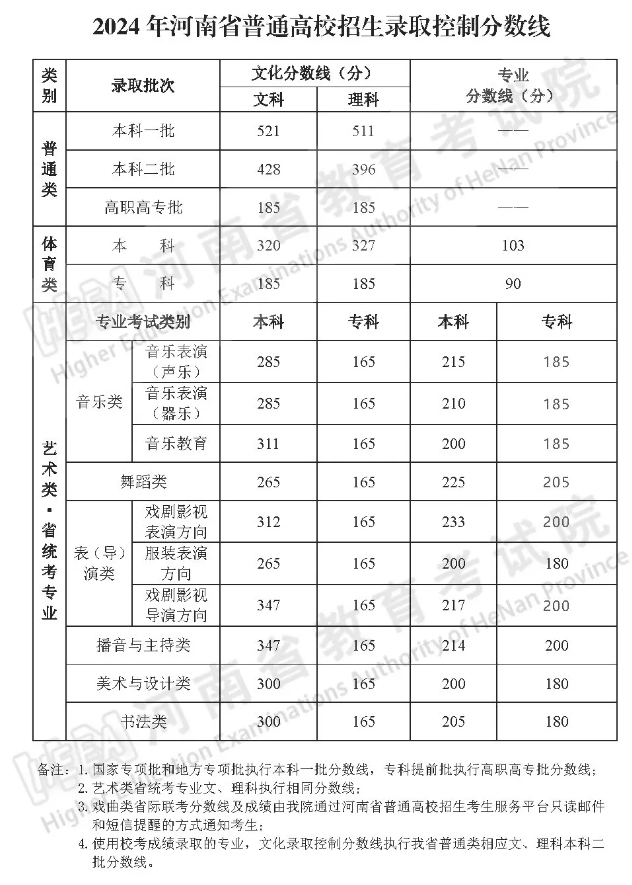 2024 年河南省普通高校招生录取控制分数线
类别 录取批次 文化分数线（分） 专业分数线（分）
文科 理科
普通类 本科一批 521 511 ——
本科二批 428 396 ——
高职高专批 185 185 ——
体育类 本 科 320 327 103
专 科 185 185 90
艺术类·省统考专业 专业考试类别 本科 专科 本科 专科
音乐类 音乐表演（声乐） 285 165 215 185
音乐表演（器乐） 285 165 210 185
音乐教育 311 165 200 185
舞蹈类 265 165 225 205
表（导）演类 戏剧影视表演方向 312 165 233 200
服装表演方向 265 165 200 180
戏剧影视导演方向 347 165 217 200
播音与主持类 347 165 214 200
美术与设计类 300 165 200 180
书法类 300 165 205 180
备注：1. 国家专项批和地方专项批执行本科一批分数线，专科提前批执行高职高专批分数线；
2. 艺术类省统考专业文、理科执行相同分数线；
3. 戏曲类省际联考分数线及成绩由我院通过河南省普通高校招生考生服务平台只读邮件
和短信提醒的方式通知考生；
4. 使用校考成绩录取的专业，文化录取控制分数线执行我省普通类相应文、理科本科二
批分数线。
河南省教育考试院
Higher Education Examinations Authority of HeNan Province
河南省教育考试院
Higher Education Examinations Authority of HeNan Province